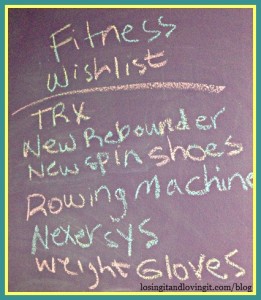 Fitness
Wishlist
TRX
New Rebounder
New spin shoes
Rowing Machine
Nexersys
Weight Gloves
losingitandlovingit.com/blog